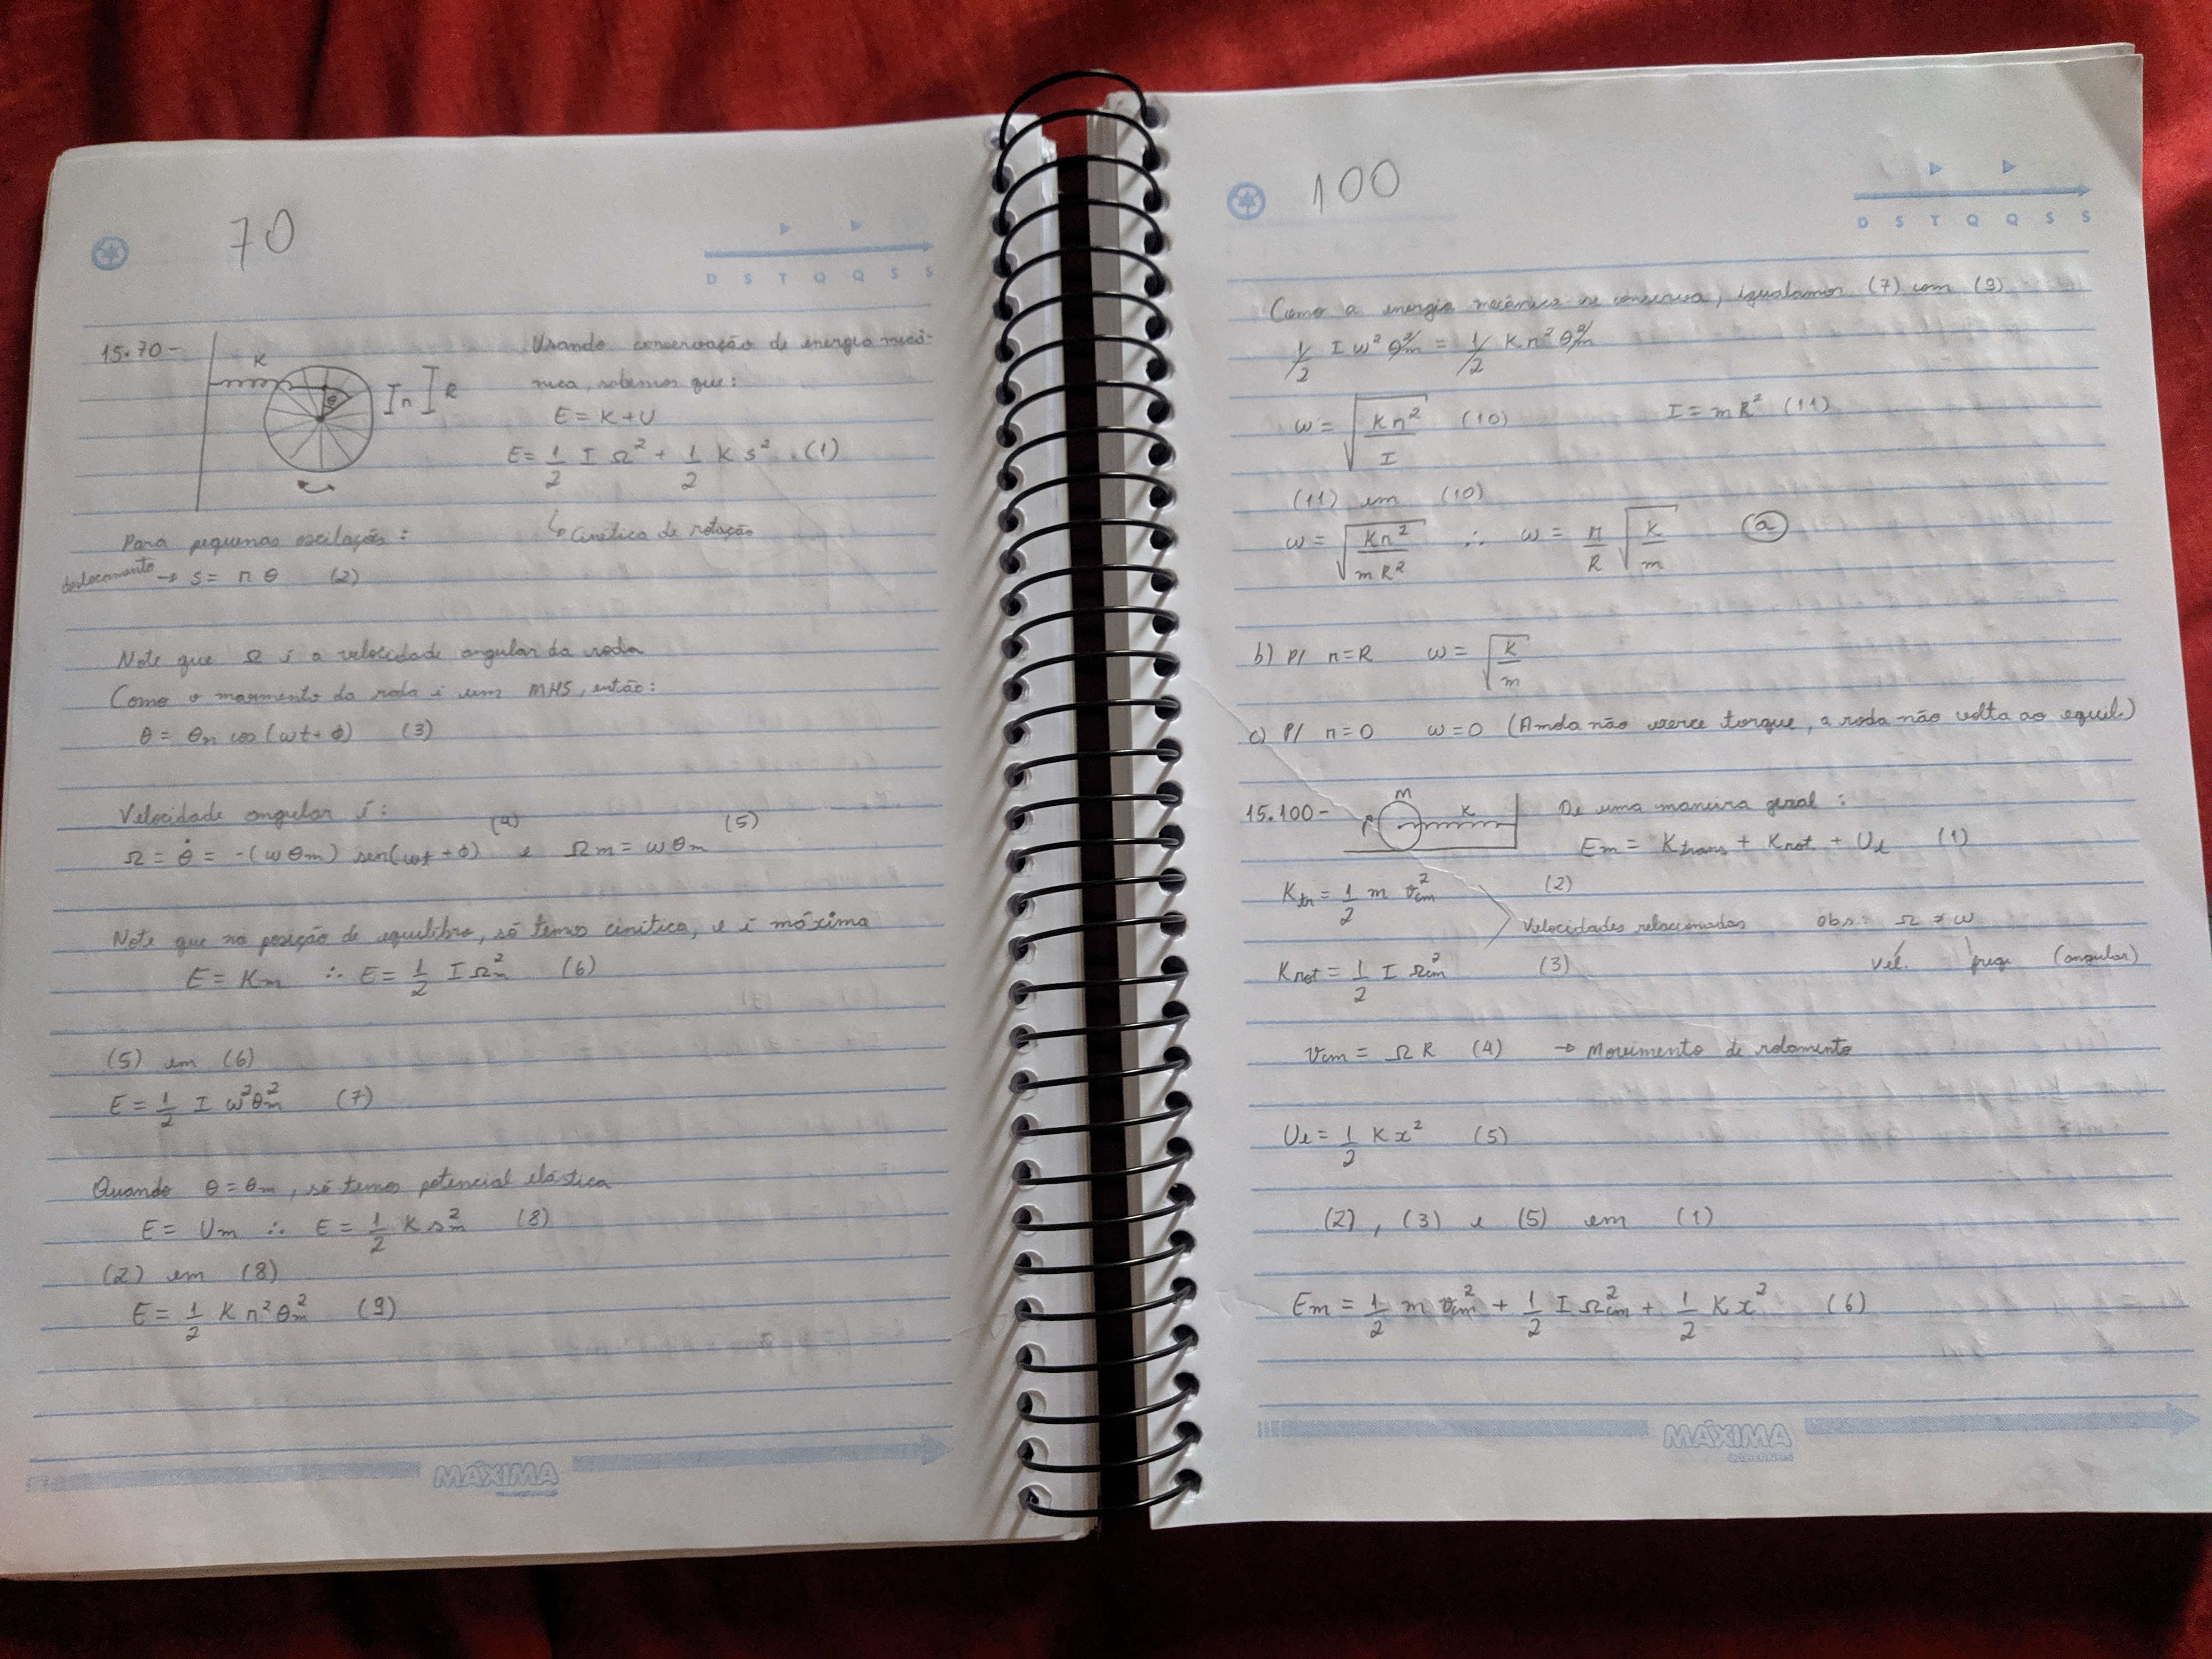 70
D S T Q Q S S
15.70-
K
θ
r
R
Usando conservação de energia mecâ-
nica, sabemos que:
E = K + U
E = 1/2 I Ω² + 1/2 K s². (1)
↳ Cinética de rotação
Para pequenas oscilações:
deslocamento → s = r θ (2)
Note que Ω é a velocidade angular da roda
Como o movimento da roda é um MHS, então:
θ = θm cos(ωt + ϕ) (3)
Velocidade angular é:
Ω = θ̇ = -(ωθm) sen(ωt + ϕ) (4) e Ωm = ωθm (5)
Note que na posição de equilíbrio, só temos cinética, e é máxima
E = Km ∴ E = 1/2 I Ωm² (6)
(5) em (6)
E = 1/2 I ω²θm² (7)
Quando θ = θm, só temos potencial elástica
E = Um ∴ E = 1/2 K sm² (8)
(2) em (8)
E = 1/2 K r² θm² (9)
MÁXIMA
100
D S T Q Q S S
Como a energia mecânica se conserva, igualamos (7) com (9)
1/2 I ω² θm² = 1/2 K r² θm²
ω = √(Kr²/I) (10) I = m R² (11)
(11) em (10)
ω = √(Kr²/mR²) ∴ ω = r/R √(k/m) (a)
b) P/ r = R ω = √(k/m)
c) P/ r = 0 ω = 0 (A mola não exerce torque, a roda não volta ao equil.)
15.100-
M
K
De uma maneira geral:
Em = Ktrans + Krot + Ue (1)
Ktr = 1/2 m Vcm² (2)
Velocidades relacionadas
Obs: Ω ≠ ω
Vel. freq. (angular)
Krot = 1/2 I Ωcm² (3)
Vcm = Ω R (4) → Movimento de rolamento
Ue = 1/2 K x² (5)
(2), (3) e (5) em (1)
Em = 1/2 m Vcm² + 1/2 I Ωcm² + 1/2 K x² (6)
MÁXIMA